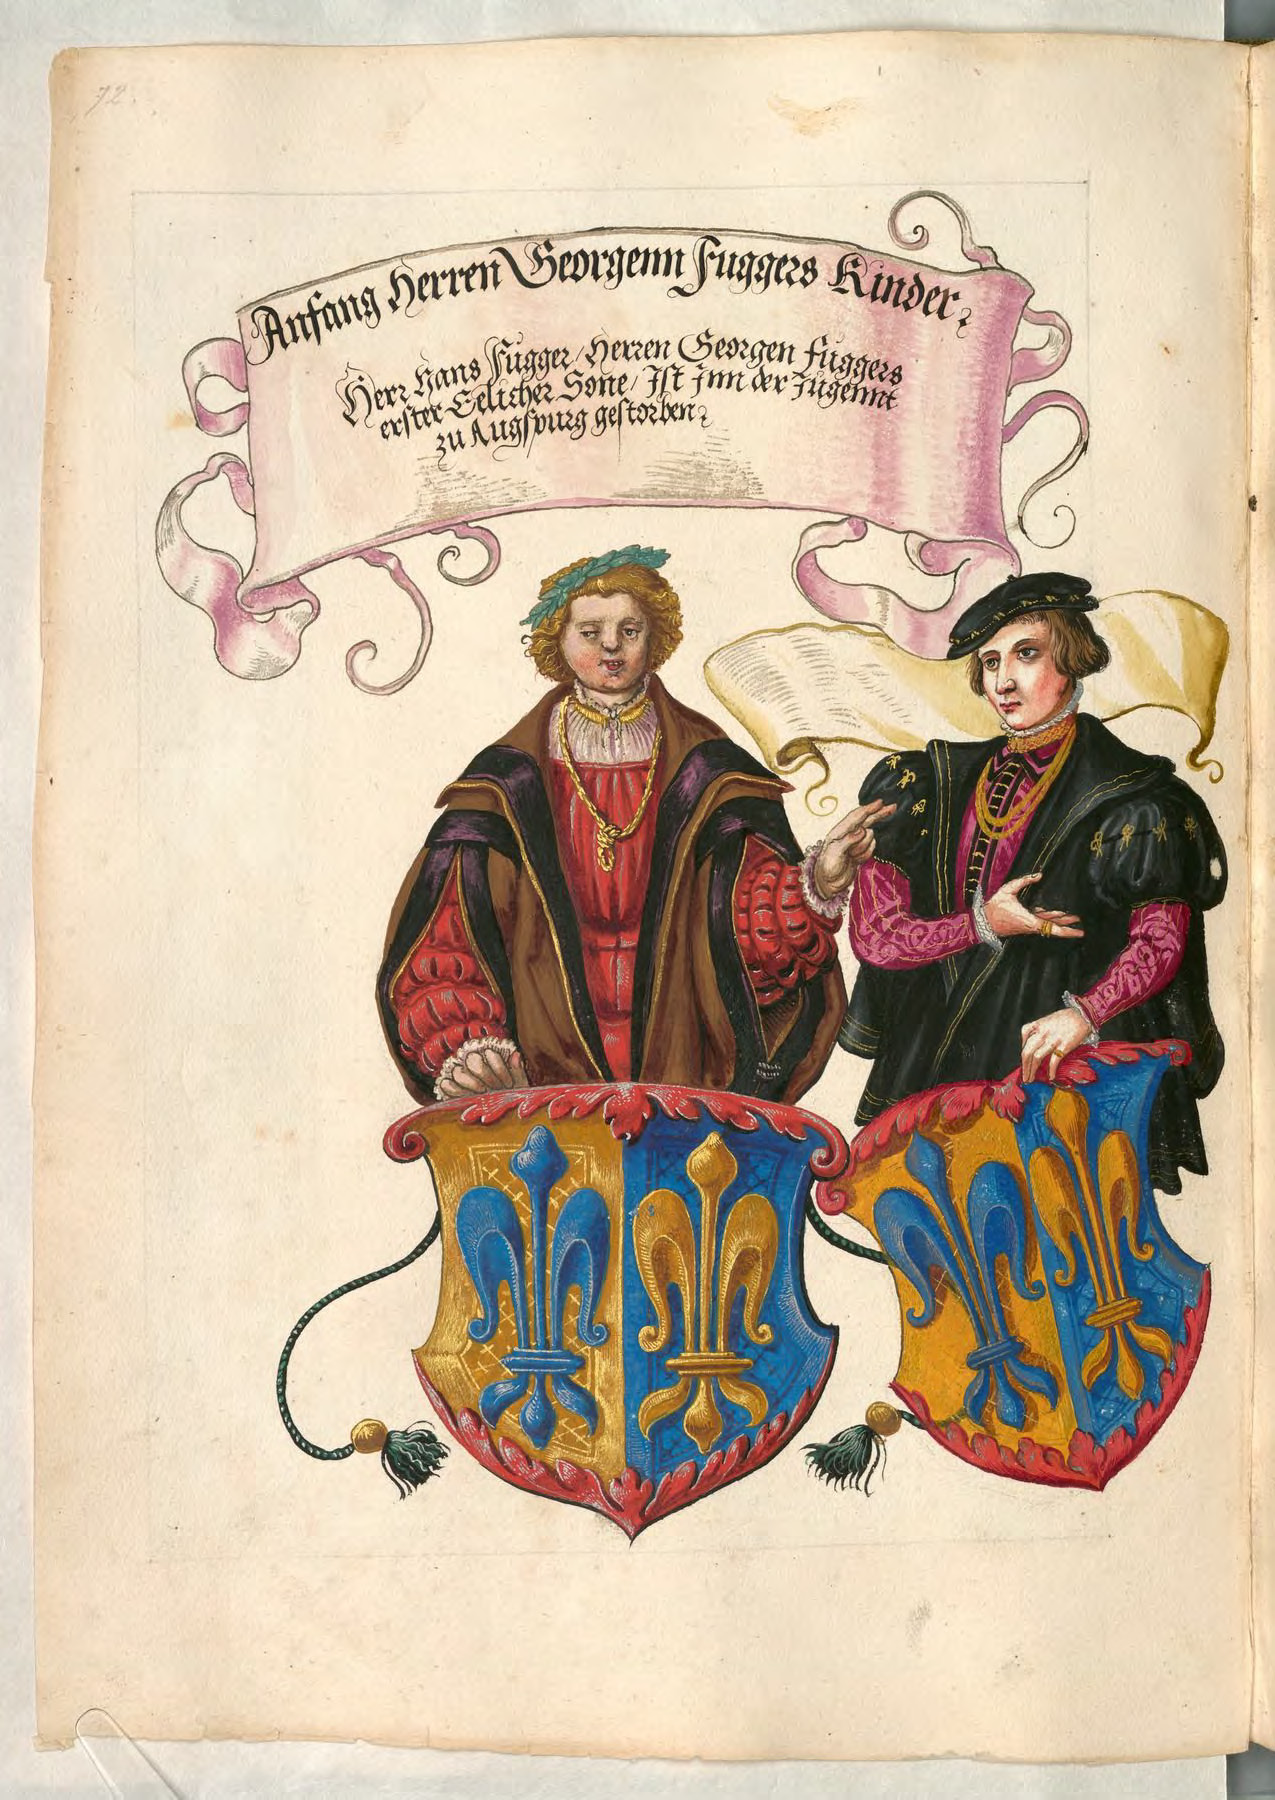 72.
Anfang Herren Georgenn Fuggers Kinder,
Herr Hans Fugger/Herren Georgen Fuggers
erster Eelicher Sone/Ist Jnn der Jugennt
zu Augspurg gestorben,